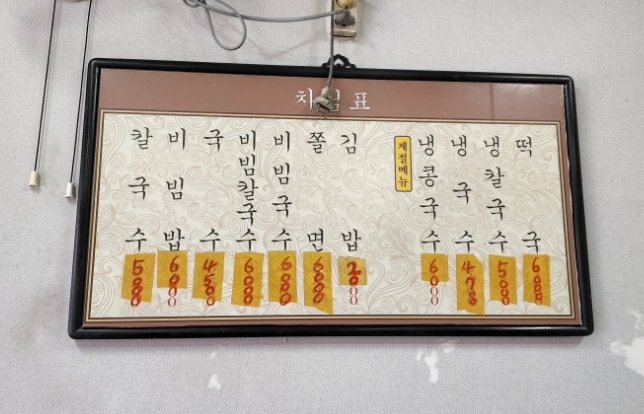 차림표
칼국수 5000
비빔밥 6000
국수 4500
비빔칼국수 6000
비빔국수 6000
쫄면 6000
김밥 2000
계절메뉴
냉콩국수 6000
냉국수
냉칼국수 5000
떡국 6000